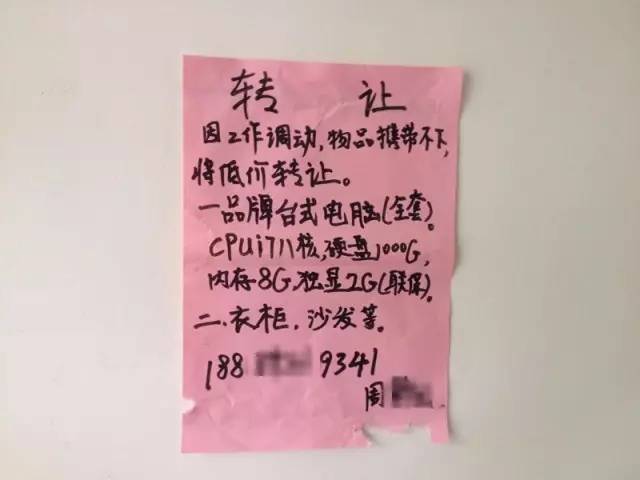 转 让
因工作调动,物品携带不下,
将低价转让。
一品牌台式电脑(全套)。
CPUi7八核,硬盘1000G,
内存8G,独显2G(联保)。
二.衣柜,沙发等。
188 9341
周